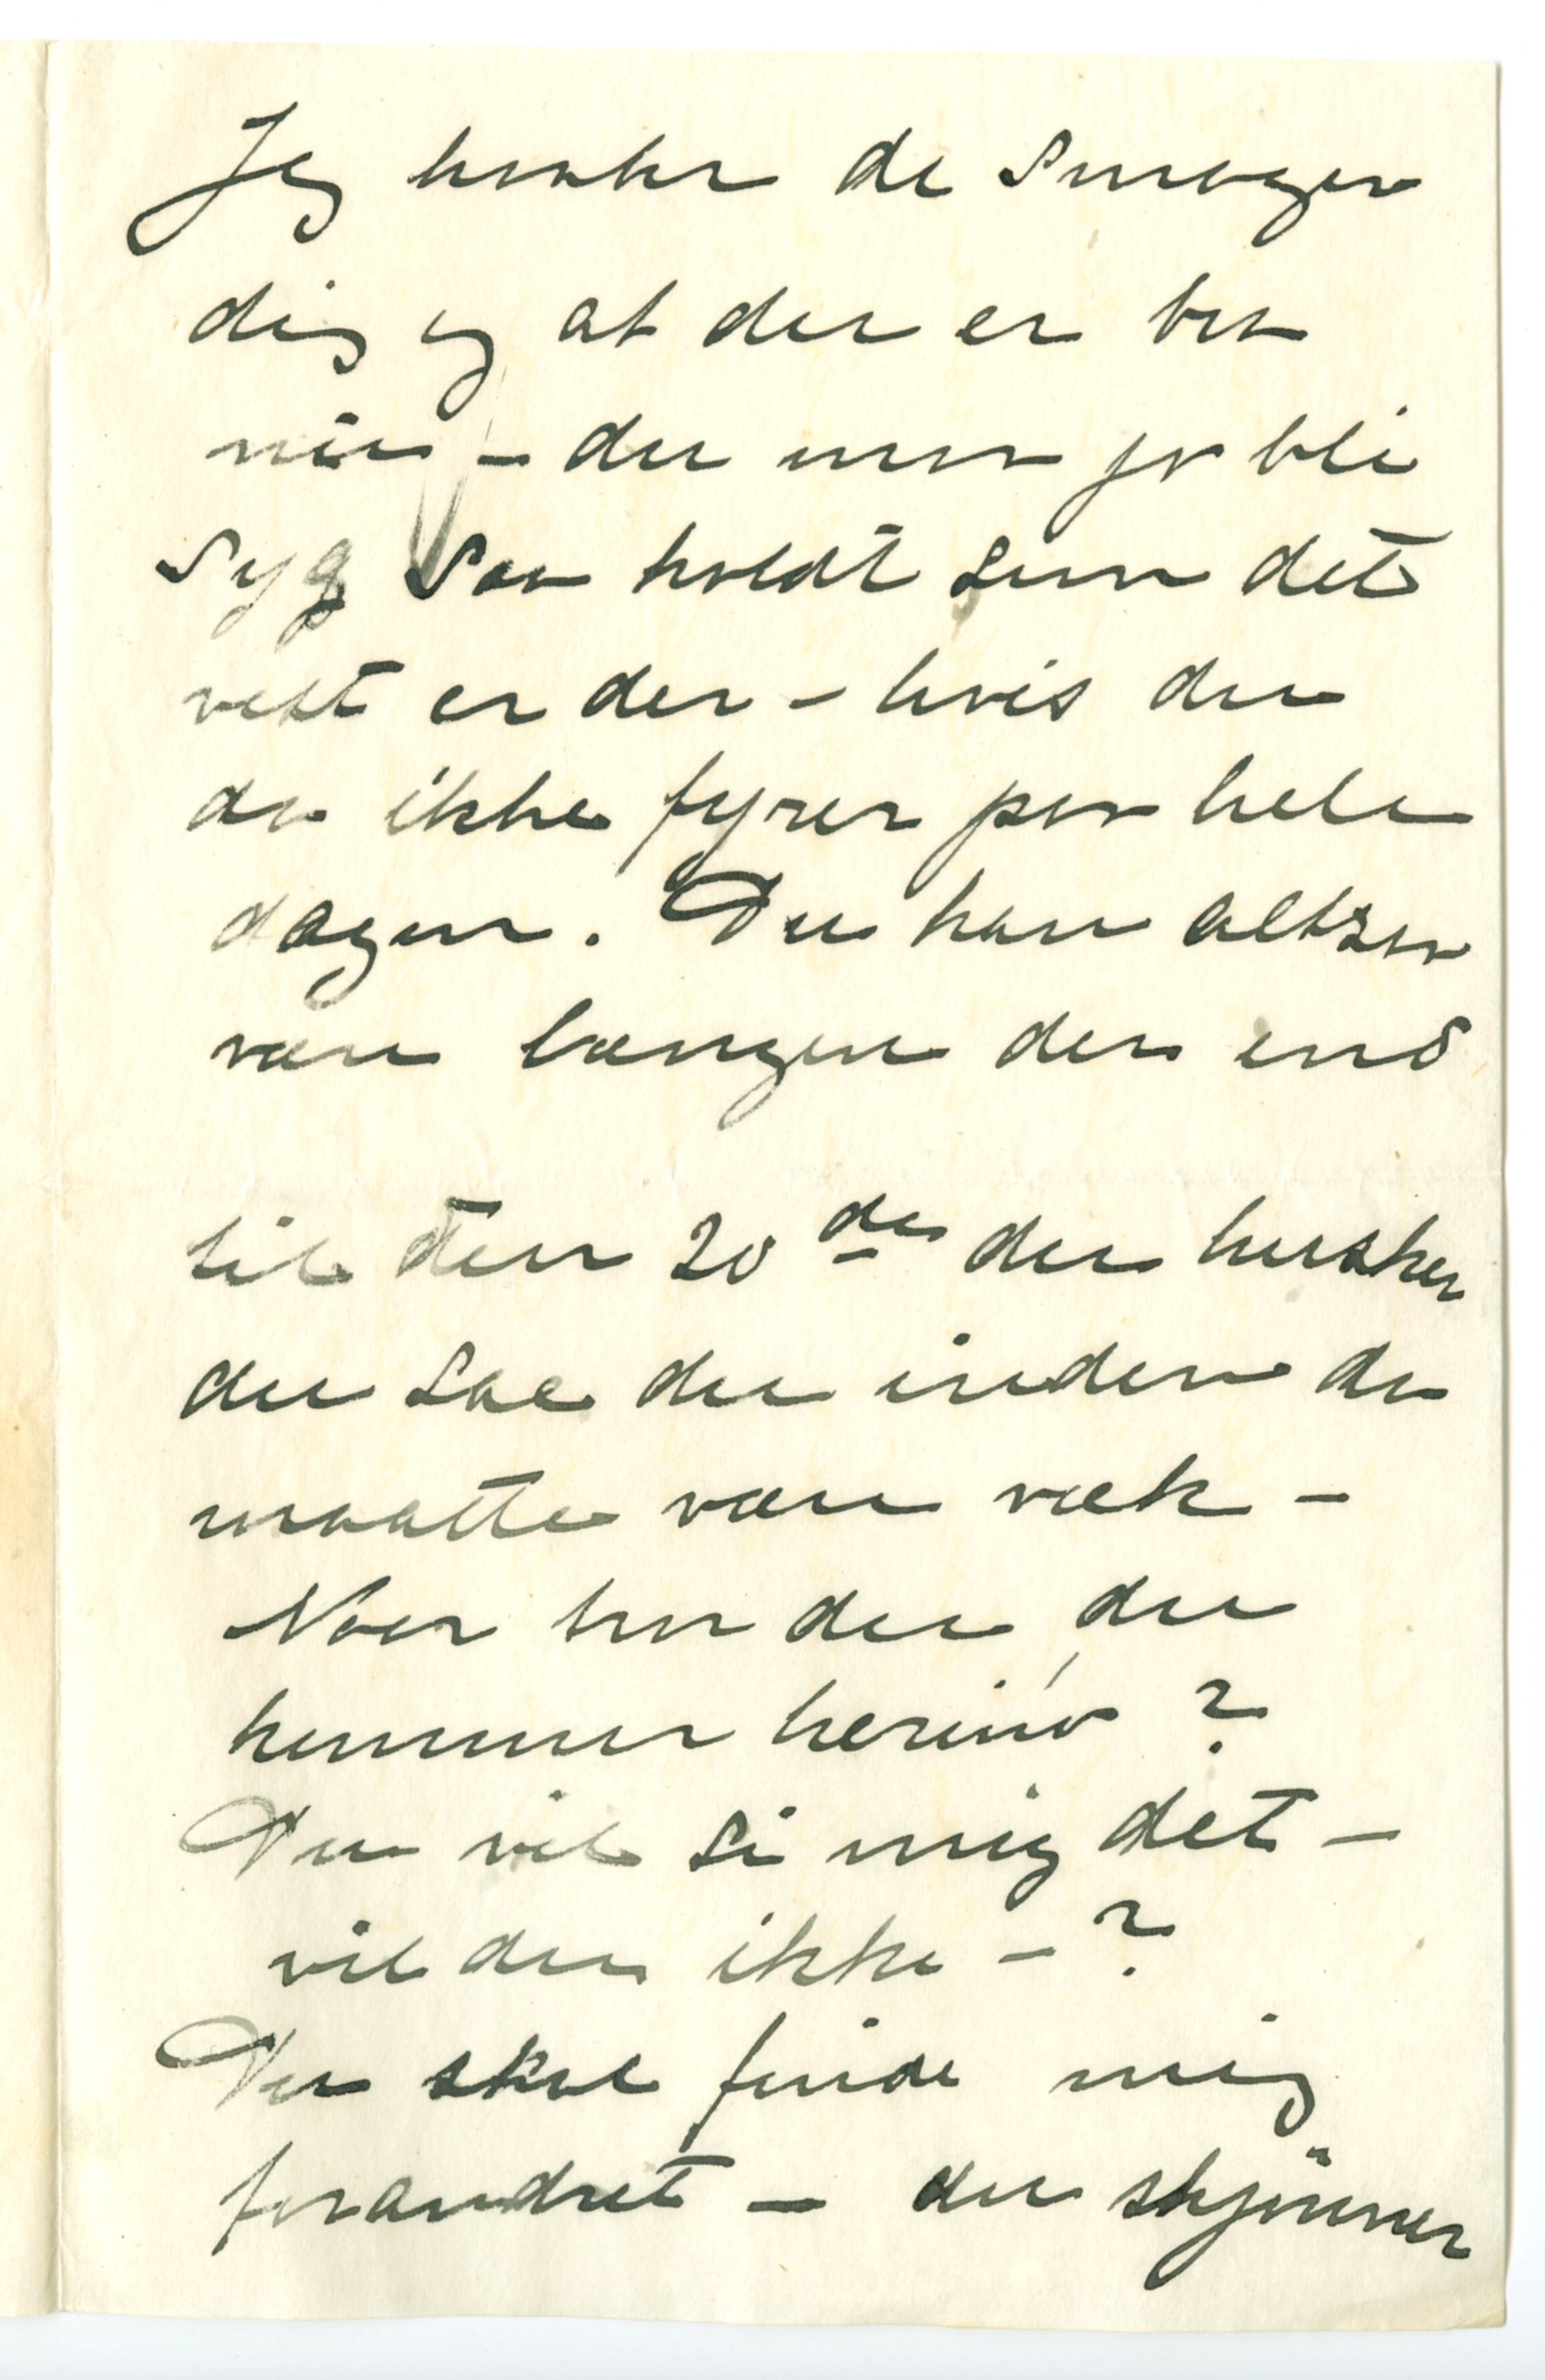 Jeg haaber de smager
dig og at du er bra
min – du maa jo bli
syg saa koldt som det
vist er der – hvis du
da ikke fyrer paa hele
dagen. Du kan altsaa
være længer der end
til den 20de du husker
du sae du inden da
maatte være væk –
Naar tror du du
kommer herind?
Du vil si mig det –
vil du ikke – ?
Du skal finde mig
forandret – du skjønner